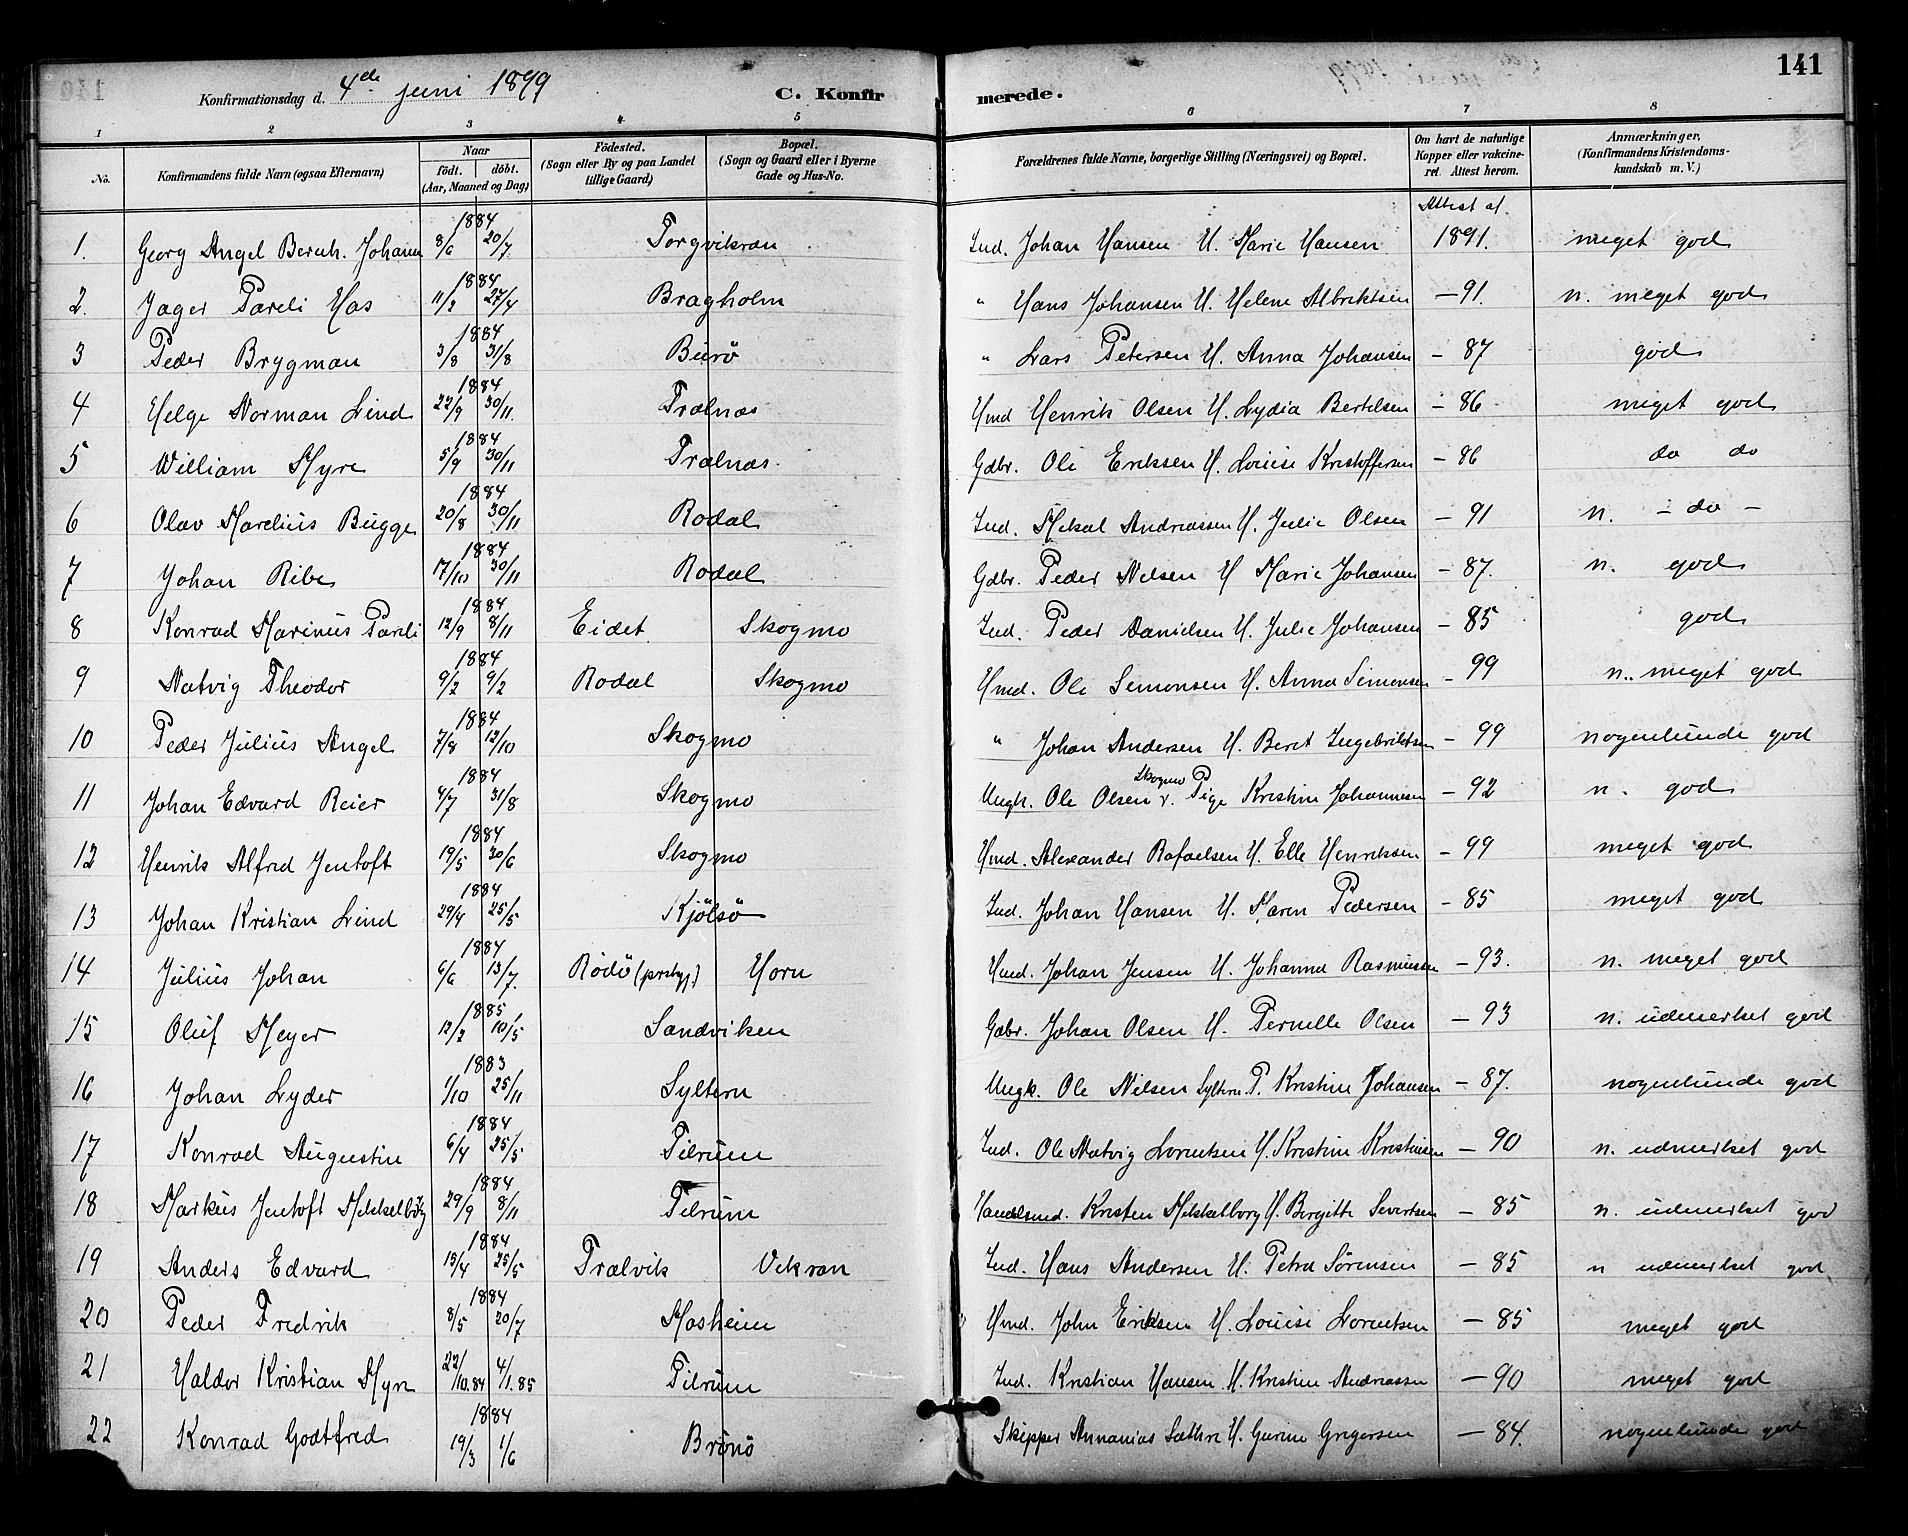 141
Konfirmationsdag d. 4de juni 1899 C. Konfirmerede.
1 2 3 4 5 6 7 8
No. Konfirmandens fulde Navn (ogsaa Efternavn) Naar födt. döbt. (Aar, Maaned og Dag) Födested. (Sogn eller By og paa Landet tillige Gaard) Bopæl. (Sogn og Gaard eller i Byerne Gade og Hus-No. Forældrenes fulde Navne, borgerlige Stilling (Næringsvei) og Bopæl. Om havt de naturlige Kopper eller vakcineret. Attest herom. Anmærkninger. (Konfirmandens Kristendomskundskab m. V.)
Attest af
1. Georg Angel Bernh. Johann 1884 8/6 20/7 Torgvikran Ind. Johan Hansen H. Marie Hansen 1891. meget god
2. Jager Pareli Has 1884 11/2 27/4 Bragholm " Hans Johansen H. Helene Albriktsen — 91. n. meget god
3 Peder Brygman 1884 3/8 31/8 Burö " Lars Petersen H. Anna Johansen - 87 god
4 Helge Norman Lind 1884 22/9 30/11. Trælnæs Hmd Henrik Olsen H. Lydia Bertelsen - 86 meget god
5 William Myre 1884 5/9 30/11 Trælnæs. Gdbr. Ole Eriksen H. Louise Kristoffersen - 86 do do
6 Olav Marelius Bugge 1884 20/8 30/11 Rodal Ind. Mekal Andreassen H. Julie Olsen - 91 n. - do -
7 Johan Ribe 1884 17/10 30/11 Rodal Gdbr. Peder Nelsen H Marie Johansen - 87. n. god
8 Konrad Marinus Pareli 1884 12/9 8/11 Eidet Skogmo Ind. Peder Danielsen H. Julie Johansen - 85 god
9 Natvig Theodor 1884 9/2 9/2 Rodal Skogmo Hmd. Ole Simonsen H. Anna Simonsen - 99 n. meget god
10 Peder Julius Angel 1884 7/8 12/10 Skogmo " Johan Andersen H. Beret Ingebriktsen - 99 nogenlunde god
11 Johan Edvard Reier 1884 4/7 31/8 Skogmo Ungk. Ole Olsen Skogmo v. Pige Kristine Johannesen - 92 n. god
12 Henrik Alfred Jentoft 1884 19/5 20/6 Skogmo Hmd. Alexander Rafaelsen H. Elle Henriksen - 99 meget god
13 Johan Kristian Lind 1884 29/4 25/5 Kjölsö Ind. Johan Hansen H. Maren Pedersen - 85 meget god
14 Julius Johan 1884 6/6 13/7. Rödö Horn Hmd. Johan Jensen H. Johanna Rasmussen - 93. n. meget god
15 Oluf Meyer 1885 12/2 10/5 Sandviken Gdbr. Johan Olsen H. Pernelle Olsen - 93 n. udmerket god
16 Johan Lyder 1883 1/10 25/11 Syltern Ungk. Ole Nilsen Syltern. P. Kristine Johansen - 87. nogenlunde god
17 Konrad Augustin 1884 6/4 25/5 Tilrum Ind. Ole Natvig Lorentsen H. Kristine Kristiansen - 90 n. udmerket god
18 Markus Jentoft Mikkelborg 1884 29/9 8/11 Tilrum Handelsmd. Kristen Mikkelborg H. Birgitte Sivertsen - 85 n. udmerket god
19 Anders Edvard 1884 15/4 25/5 Trælvik Vikran Ind. Hans Andersen H. Petra Sörensen - 85 n udmerket god
20 Peder Fredrik 1884 8/5 20/7 Mosheim Hmd. John Eriksen H. Louise Lorentsen - 85 meget god
21 Haldor Kristian Myre 22/10.84 4/1.85 Tilrum Ind. Kristian Hansen H. Kristine Andreassen - 90 meget god
22 Konrad Godtfred 1884 19/3 1/6 Brönö Skipper Annanias Sæthre H. Gurine Gregersen - 84. nogenlunde god